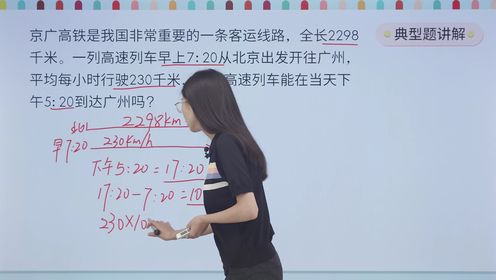 京广高铁是我国非常重要的一条客运线路，全长2298
千米。一列高速列车早上7：20从北京出发开往广州，
平均每小时行驶230千米
高速列车能在当天下
午5：20到达广州吗？
典型题讲解
2298km
早7:20 230km/h
下午5:20=17:20
17:20-7:20=10
230×10